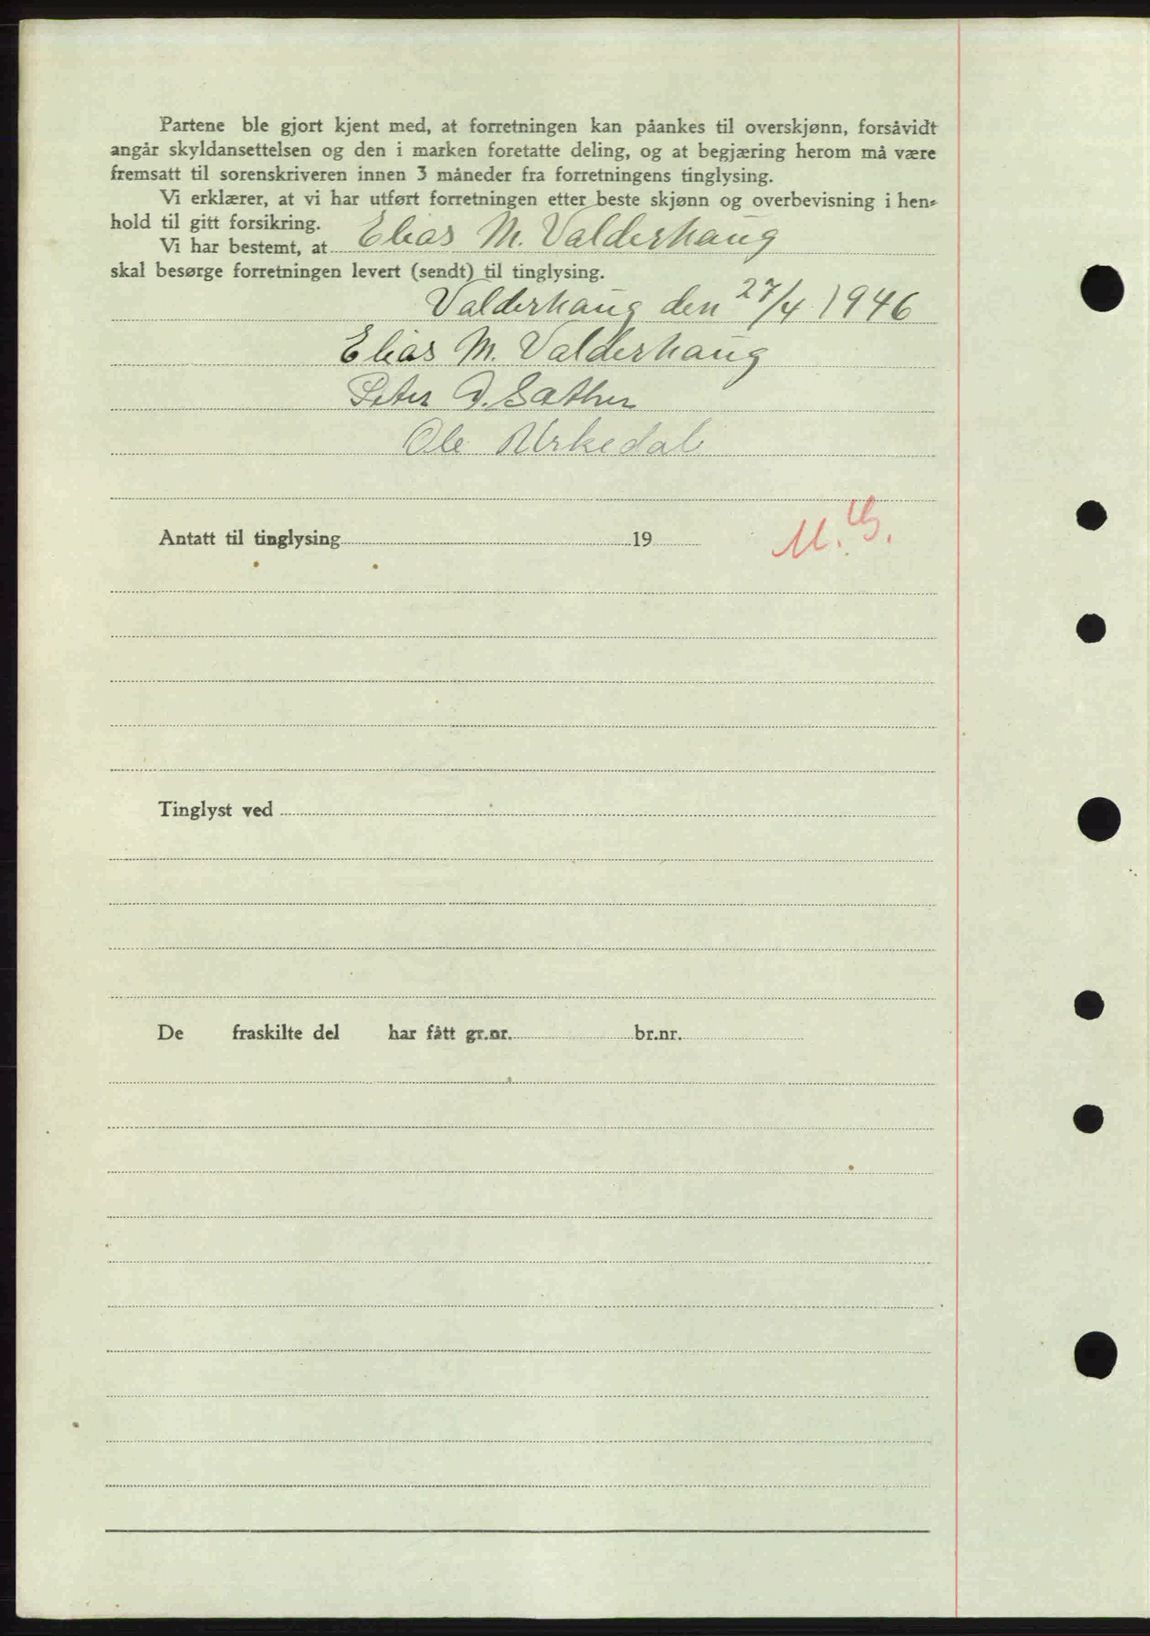 Partene ble gjort kjent med, at forretningen kan påankes til overskjønn, forsåvidt
angår skyldansettelsen og den i marken foretatte deling, og at begjæring herom må være
fremsatt til sorenskriveren innen 3 måneder fra forretningens tinglysing.
Vi erklærer, at vi har utført forretningen etter beste skjønn og overbevisning i hen-
hold til gitt forsikring.
Vi har bestemt, at Elias M. Valderhaug
skal besørge forretningen levert (sendt) til tinglysing.
Valderhaug den 27/4 1946
Elias M. Valderhaug
Peter Sæther
Ole Urkedal
Antatt til tinglysing 19
M. G.
Tinglyst ved
De fraskilte del har fått gr.nr. br.nr.